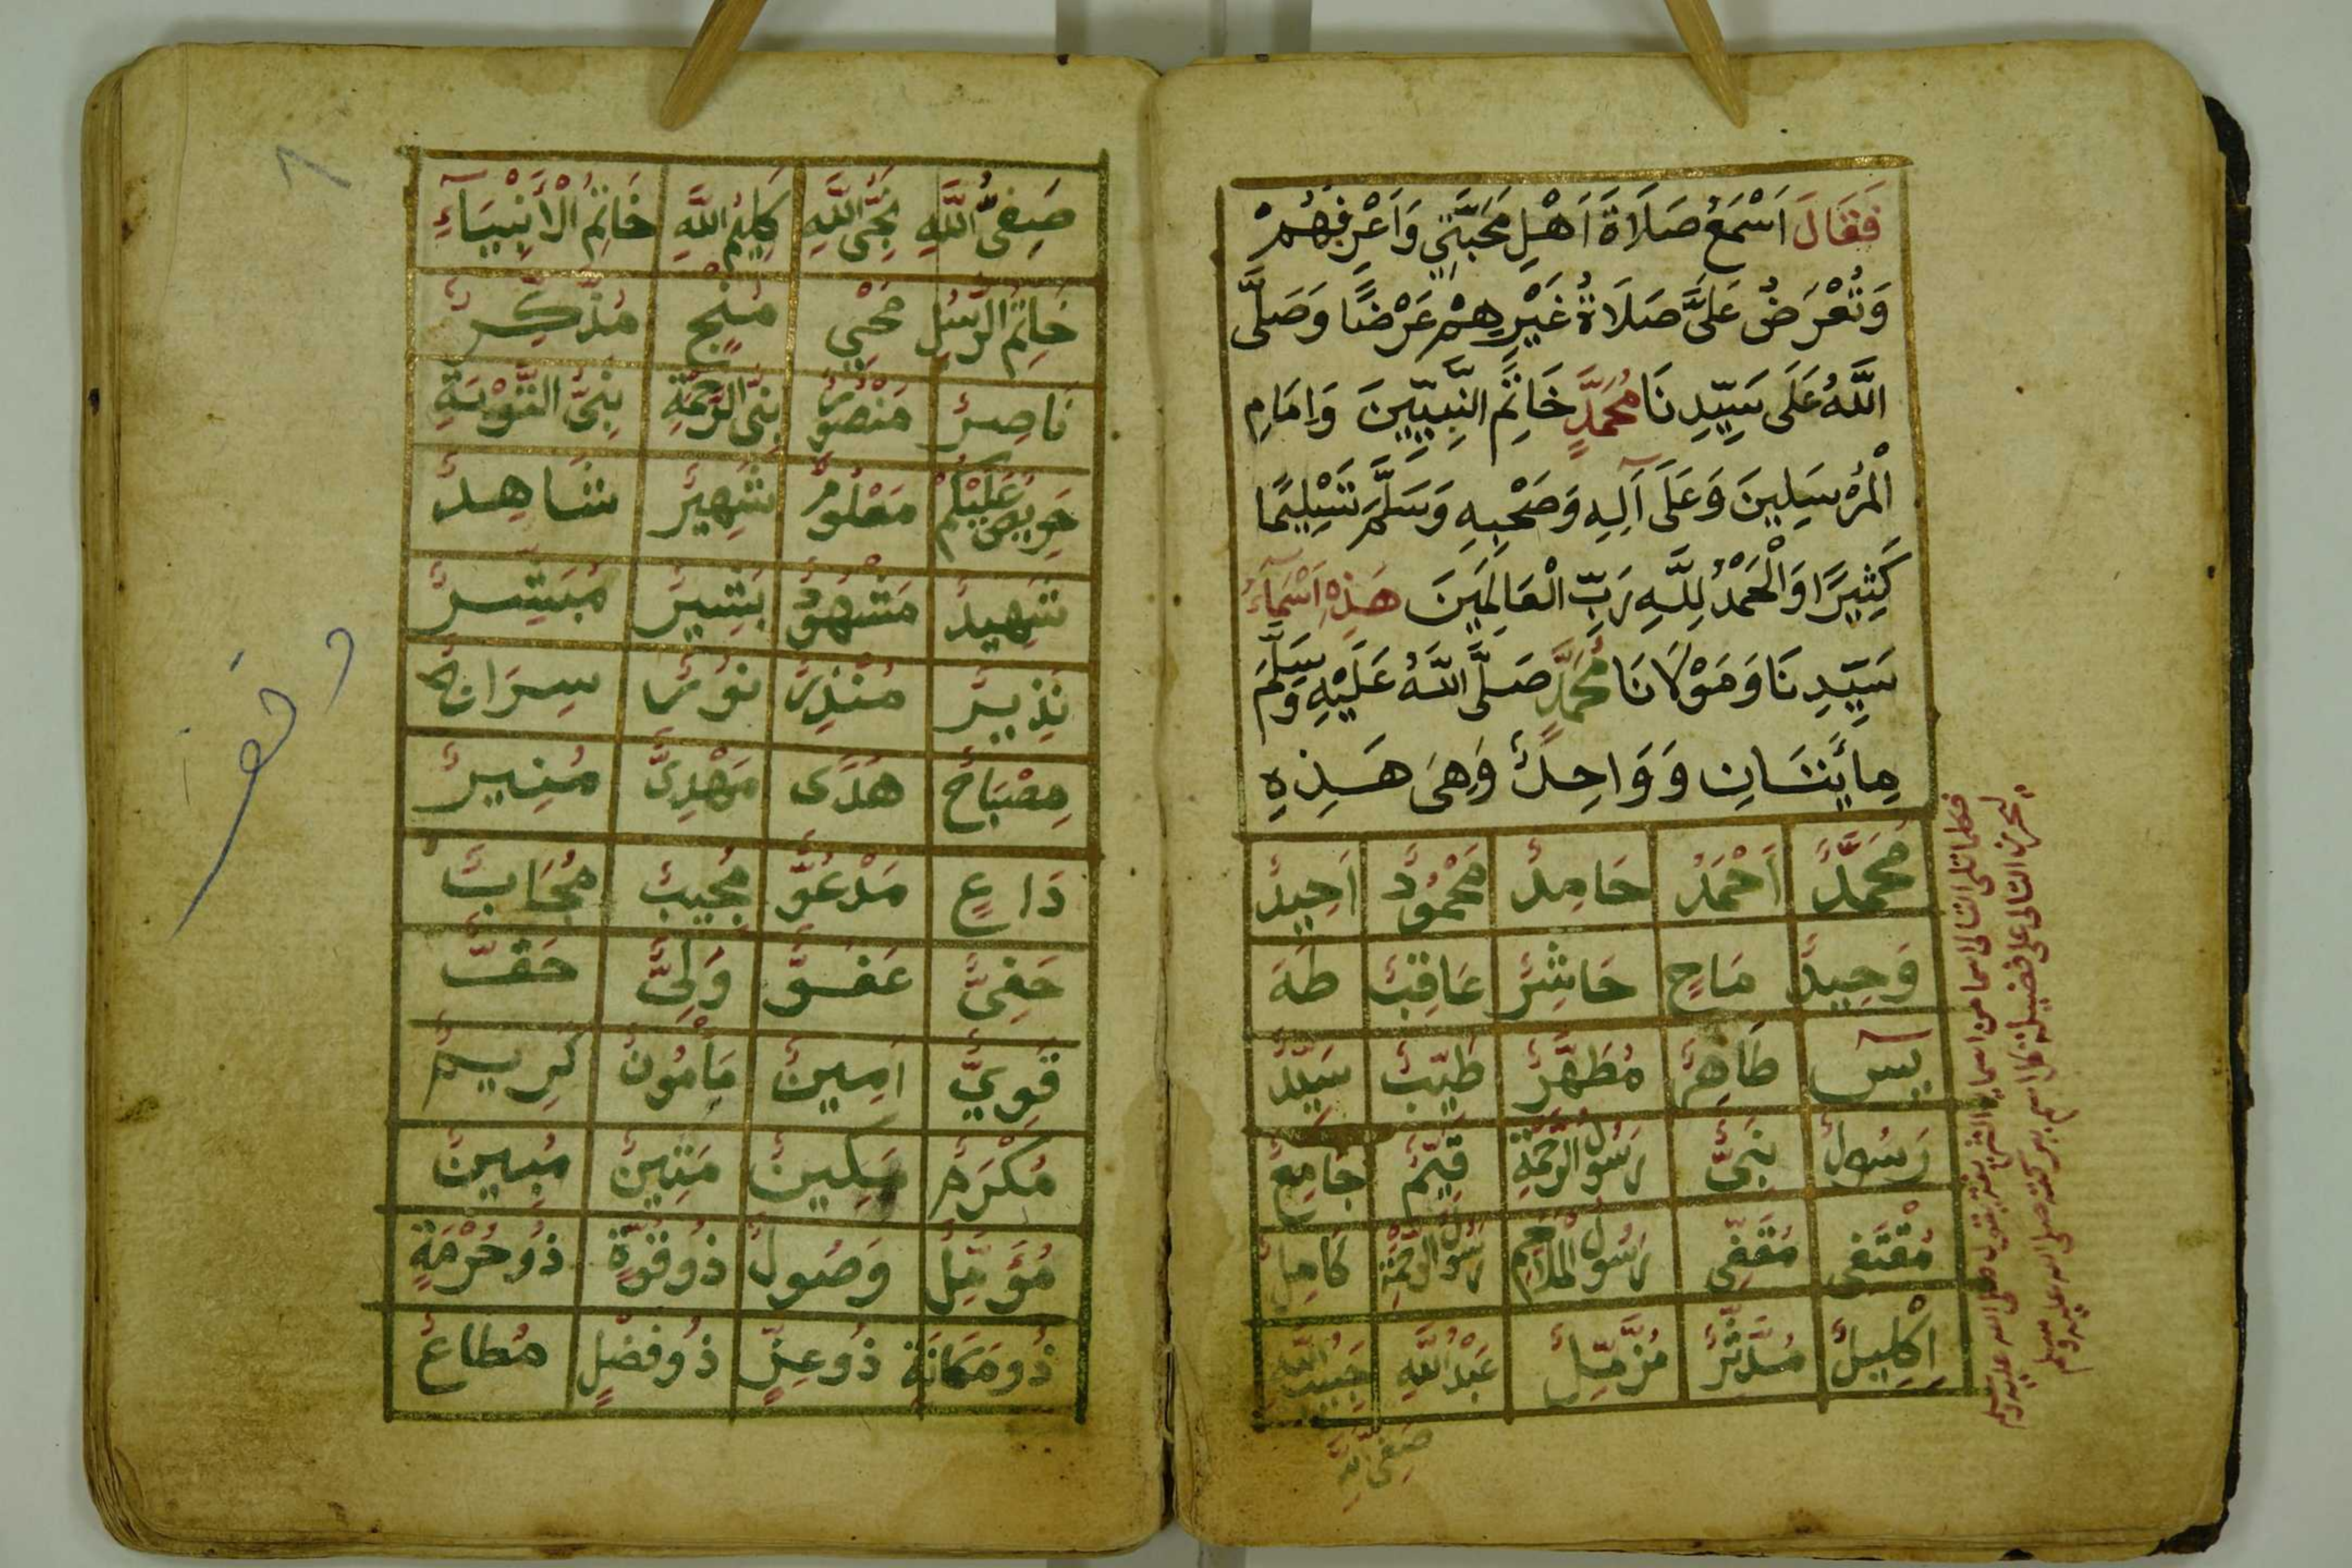 فَقَالَ اَسْمَعُ صَلَاةَ اَهْلِ مَحَبَّتِي وَاَعْرِفُهُمْ
وَتُعْرَضُ عَلَىَّ صَلَاةُ غَيْرِهِمْ عَرْضًا وَصَلَّى
اللّٰهُ عَلَى سَيِّدِنَا مُحَمَّدٍ خَاتَِمِ النَّبِيِّينَ وَاِمَامِ
الْمُرْسَلِينَ وَعَلَى آلِهِ وَصَحْبِهِ وَسَلَّمَ تَسْلِيمًا
كَثِيرًا وَالْحَمْدُ لِلّٰهِ رَبِّ الْعَالَمِينَ هَذِهِ اَسْمَآءُ
سَيِّدِنَا وَمَوْلَانَا مُحَمَّدٍ صَلَّى اللّٰهُ عَلَيْهِ وَسَلَّمَ
مِائَتَانِ وَوَاحِدٌ وَهِىَ هَذِهِ
مُحَمَّدٌ اَحْمَدُ حَامِدٌ مَحْمُودٌ اَحِيدٌ
وَحِيدٌ مَاحٍ حَاشِرٌ عَاقِبٌ طَهَ
يٓس طَاهِرٌ مُطَهَّرٌ طَيِّبٌ سَيِّدٌ
رَسُولٌ نَبِىٌّ رَسُولُ الرَّحْمَةِ قَيِّمٌ جَامِعٌ
مُقْتَفى مُقَفِّى رَسُولُ الْمَلَاحِمِ رَسُولُ الرَّحْمَةِ كَامِلٌ
اِكْلِيلٌ مُدَّثِّرٌ مُزَّمِّلٌ عَبْدُ اللّٰهِ حَبِيبُ اللّٰهِ
صَفِىُّ اللّٰهِ
فكلما تلى التالى اسما من اسمايه الشريفة يقول صلى الله عليه وسلم
صَفِىُّ اللّٰهِ نَجِىُّ اللّٰهِ كَلِيمُ اللّٰهِ خَاتِمُ الْاَنْبِيَآءِ
خَاتِمُ الرُّسُلِ مُحْيِي مُنْجٍ مُذَكِّرٌ
نَاصِرٌ مَنْصُورٌ نَبِىُّ الرَّحْمَةِ نَبِىُّ التَّوْبَةِ
حَرِيصٌ عَلَيْكُمْ مَعْلُومٌ شَهِيرٌ شَاهِدٌ
شَهِيدٌ مَشْهُودٌ بَشِيرٌ مُبَشِّرٌ
نَذِيرٌ مُنْذِرٌ نُورٌ سِرَاجٌ
مِصْبَاحٌ هُدًى مَهْدِىٌّ مُنِيرٌ
دَاعٍ مَدْعُوٌّ مُجِيبٌ مُجَابٌ
حَفِىٌّ عَفُوٌّ وَلِىٌّ حَقٌّ
قَوِيٌّ اَمِينٌ مَأْمُونٌ كَرِيمٌ
مُكَرَّمٌ مَكِينٌ مَتِينٌ مُبِينٌ
مُؤَمِّلٌ وَصُولٌ ذُو قُوَّةٍ ذُو حُرْمَةٍ
ذُو مَكَانَةٍ ذُو عِزٍّ ذُو فَضْلٍ مُطَاعٌ